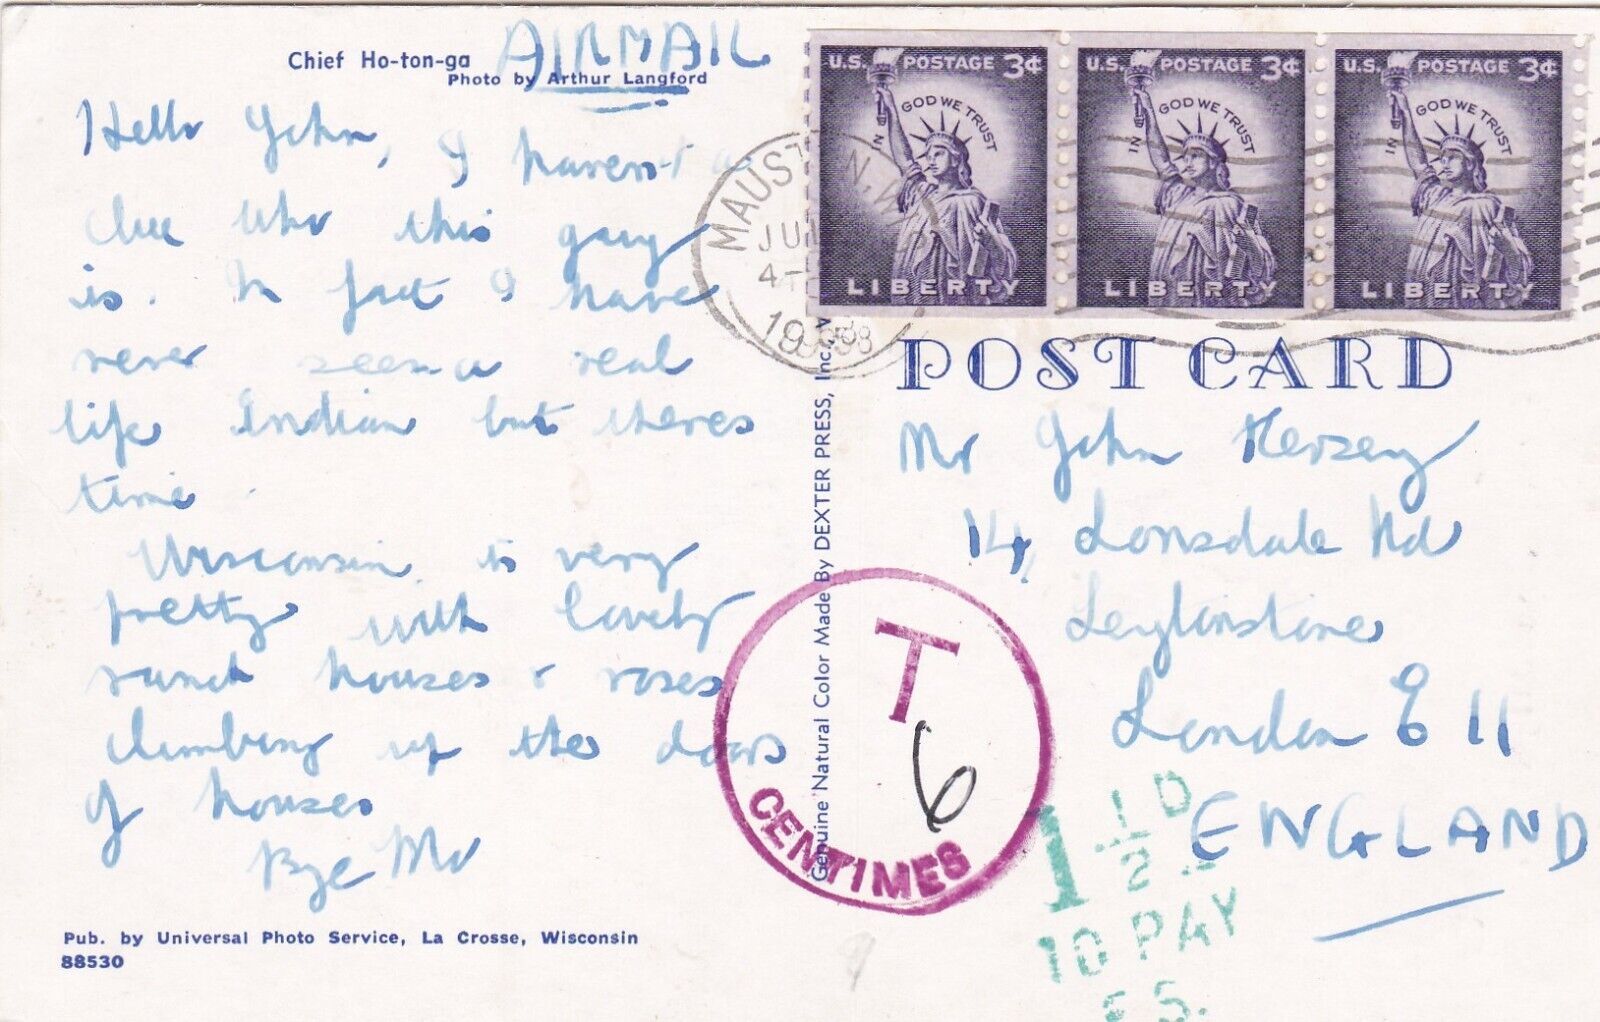 Chief Ho-ton-ga
AIRMAIL
Photo by Arthur Langford
Hello John, I haven't a
clue who this guy
is. In fact I have
never seen a real
life Indian but theres
time.
Wisconsin is very
pretty with lovely
ranch houses & roses
climbing up the doors
of houses
Bye Mv
Pub. by Universal Photo Service, La Crosse, Wisconsin
88530
Genuine Natural Color Made By DEXTER PRESS, Inc.
MAUSTON, W
JUL
4
1958
U.S. POSTAGE 3¢
IN GOD WE TRUST
LIBERTY
U.S. POSTAGE 3¢
IN GOD WE TRUST
LIBERTY
U.S. POSTAGE 3¢
IN GOD WE TRUST
LIBERTY
POST CARD
Mr John Hersey
14, Lonsdale Rd
Leytonstone
London E 11
ENGLAND
T
6
CENTIMES
1 1/2 D
TO PAY